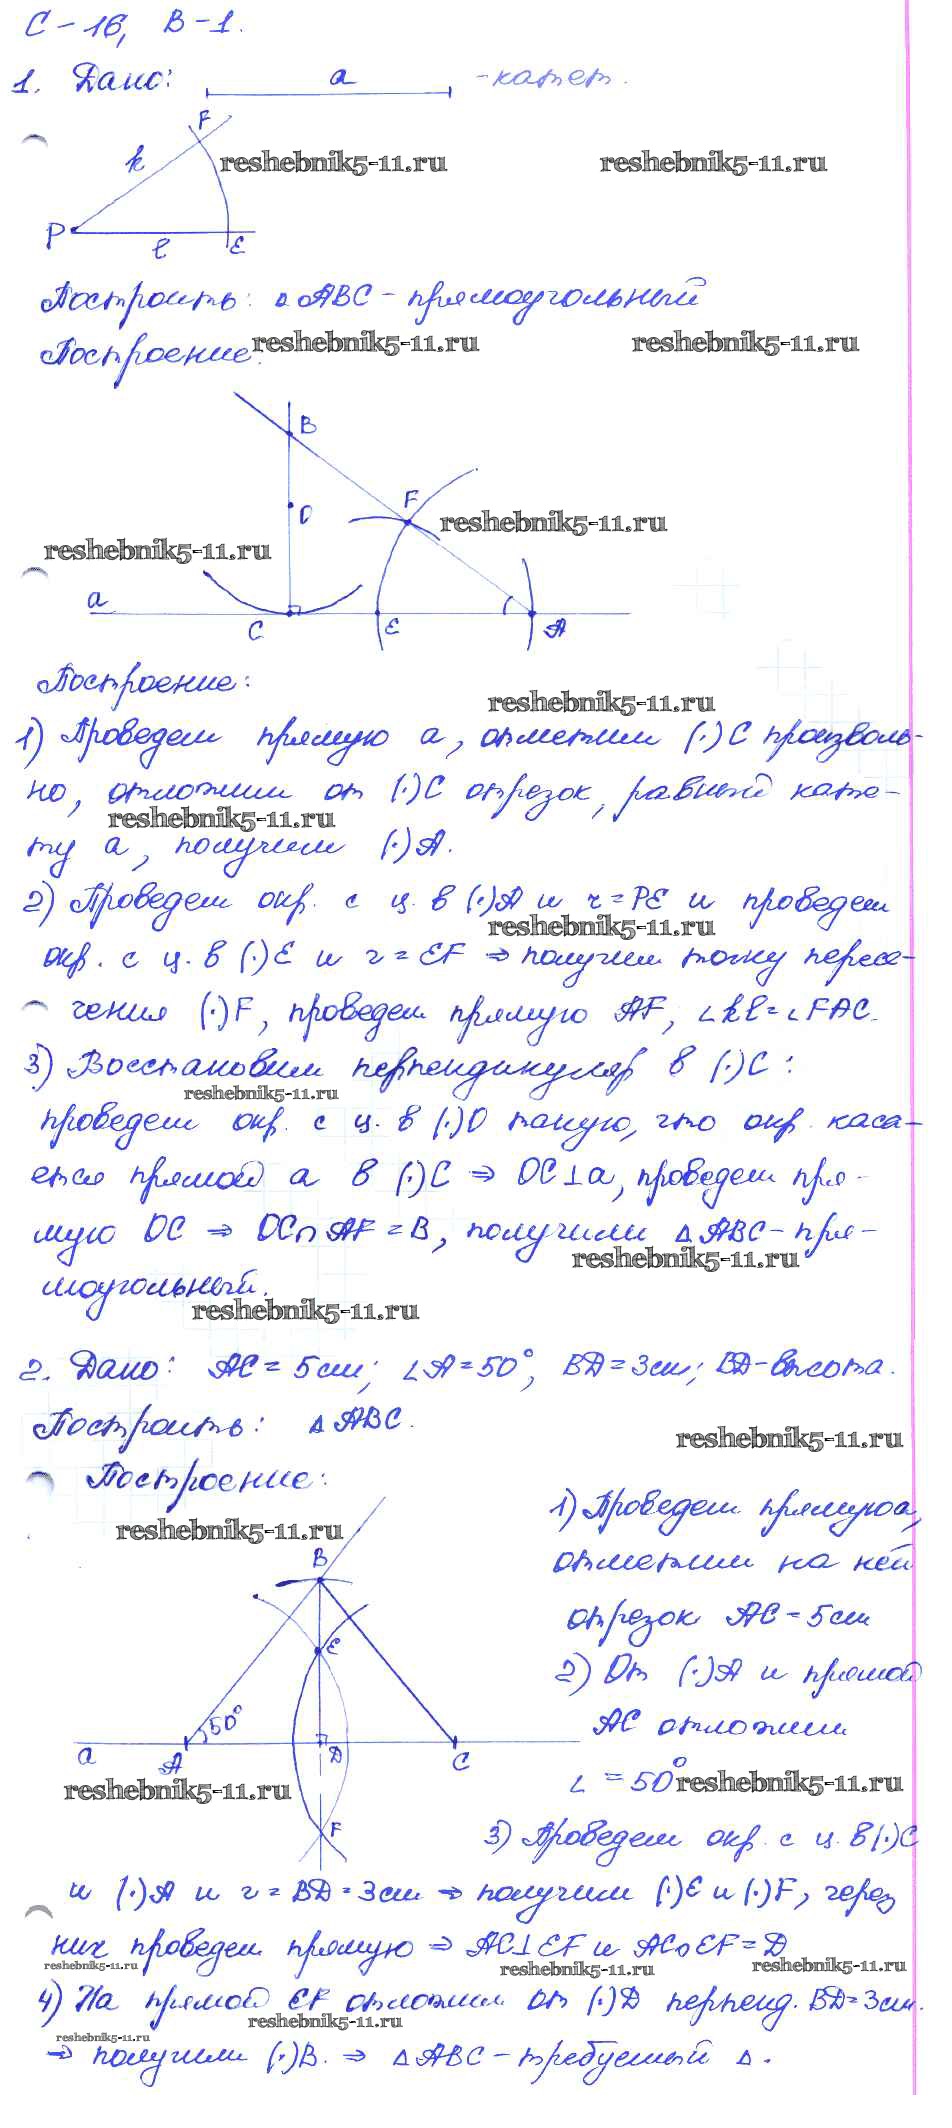 С-16, В-1.
1. Дано: a - катет.
F
k
reshebnik5-11.ru reshebnik5-11.ru
P l E
Построить: △ABC - прямоугольный
Построение: reshebnik5-11.ru reshebnik5-11.ru
B
F
O reshebnik5-11.ru
reshebnik5-11.ru
a
C E A
Построение:
reshebnik5-11.ru
1) Проведем прямую a, отметим (·)C произволь-
но, отложим от (·)C отрезок, равный кате-
reshebnik5-11.ru
ту a, получим (·)A.
2) Проведем окр. с ц. в (·)A и r=PE и проведем
reshebnik5-11.ru
окр. с ц. в (·)E и r=EF ⇒ получим точку пересе-
чения (·)F, проведем прямую AF, ∠kl=∠FAC.
3) Восстановим перпендикуляр в (·)C:
reshebnik5-11.ru
проведем окр. с ц. в (·)O такую, что окр. каса-
ется прямой a в (·)C ⇒ OC⊥a, проведем пря-
мую OC ⇒ OC∩AF=B, получили △ABC-пря-
reshebnik5-11.ru
моугольный.
reshebnik5-11.ru
2. Дано: AC=5см; ∠A=50°, BD=3см; BD-высота.
Построить: △ABC.
reshebnik5-11.ru
Построение:
reshebnik5-11.ru
B
E
50°
a A D C
reshebnik5-11.ru
F
1) Проведем прямую a,
отметим на ней
отрезок AC=5см
2) От (·)A и прямой
AC отложим
∠=50°
reshebnik5-11.ru
3) Проведем окр. с ц. в (·)C
и (·)A и r=BD=3см ⇒ получим (·)E и (·)F, через
них проведем прямую ⇒ AC⊥EF и AC∩EF=D
reshebnik5-11.ru reshebnik5-11.ru reshebnik5-11.ru
4) На прямой EF отложим от (·)D перпенд. BD=3см.
reshebnik5-11.ru
reshebnik5-11.ru
⇒ получили (·)B. ⇒ △ABC-требуемый △.